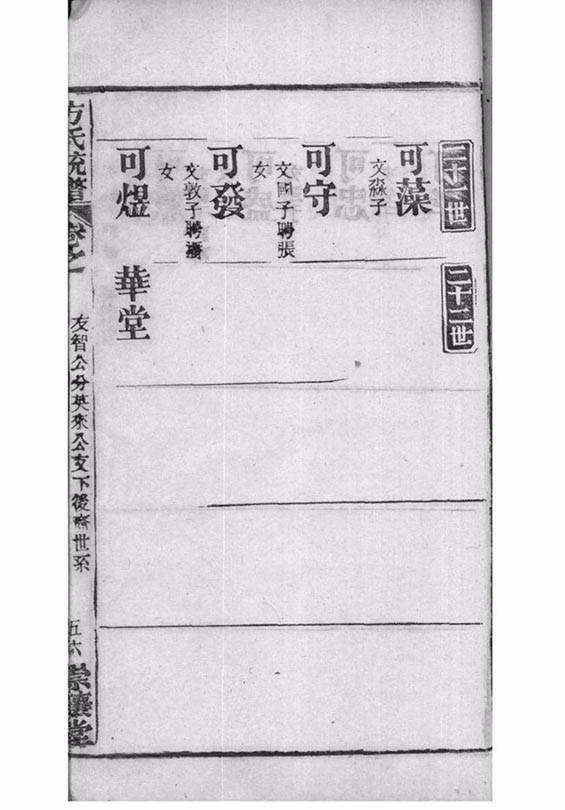 二十一世
二十二世
可藻
文淼子
可守
文國子聘張
女
可發
文敦子聘
女
可煜
華堂
方氏統譜
卷之
友智公分英來公支下後齋世系
五六
崇讓堂